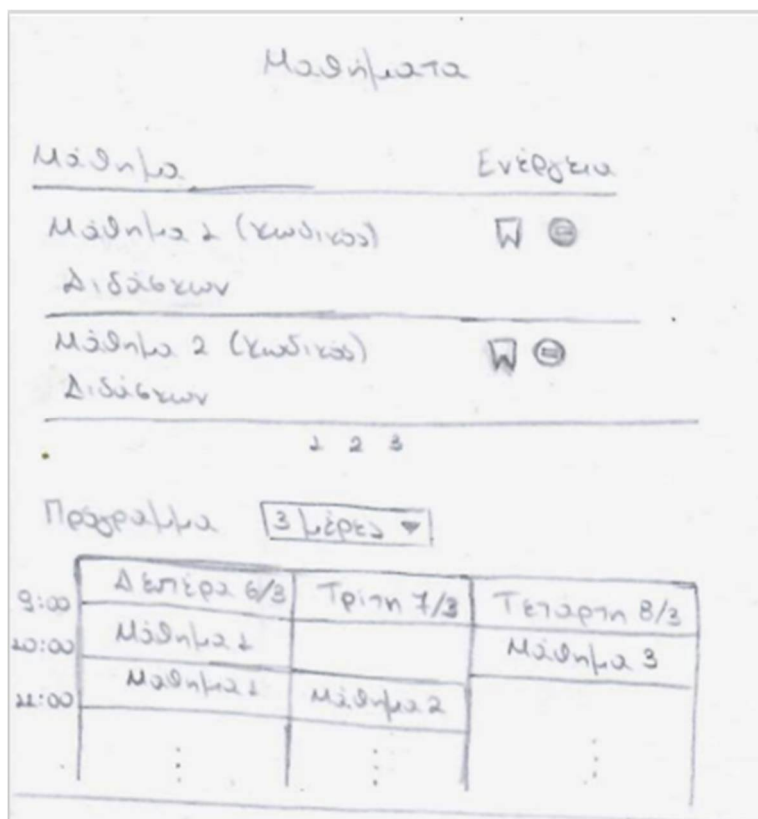 Μαθήματα
Μάθημα Ενέργεια
Μάθημα 1 (κωδικός)
Διδάσκων
Μάθημα 2 (κωδικός)
Διδάσκων
1 2 3
Πρόγραμμα 3 μέρες
Δευτέρα 6/3 Τρίτη 7/3 Τετάρτη 8/3
9:00
Μάθημα 1 Μάθημα 3
10:00
Μάθημα 1 Μάθημα 2
11:00